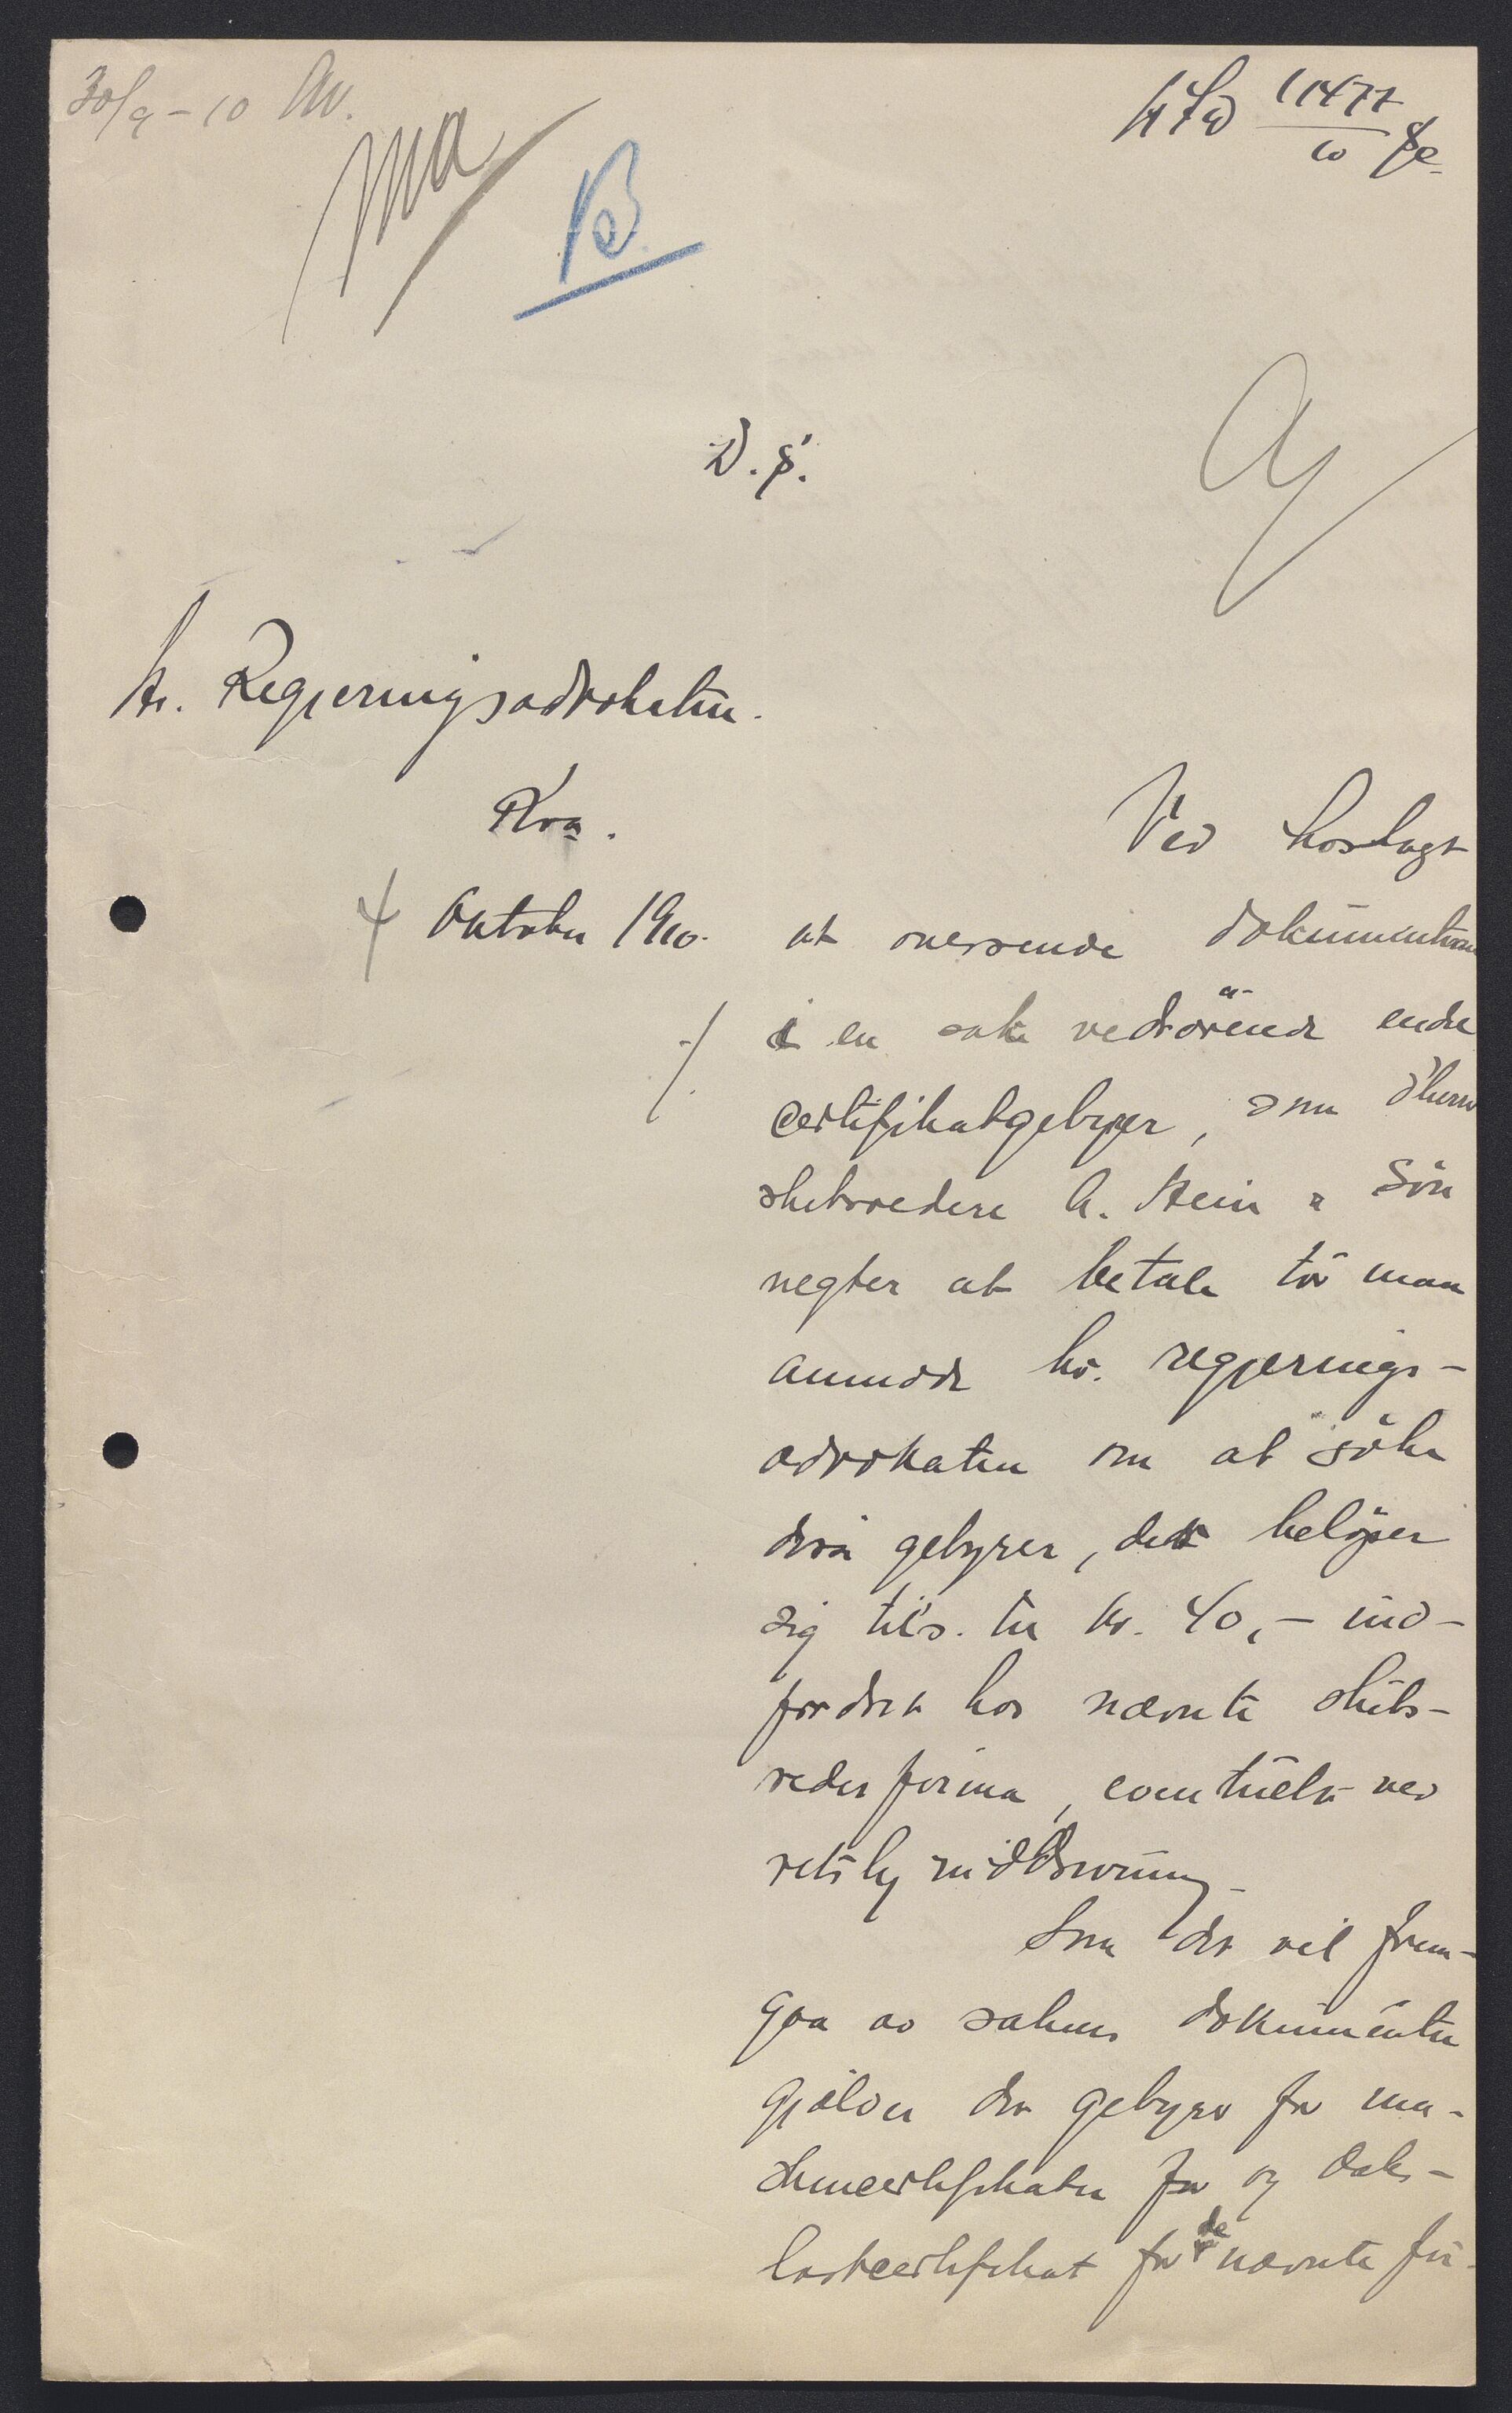 30/9 - 10 Av.
Ma
B
HFW 11477/10 Je.
D. s.
Hr. Regjeringsadvokaten.
Kra.
4 Oktober 1910.
Ved hoslagt
at oversende dokumenterne
·/· i en sak vedrørende endel
certifikatgebyrer, som d'herrer
skibsredere A. Stein & Søn
negter at betale tør man
anmode hr. regjerings-
advokaten om at søke
disse gebyrer, der beløper
sig tils. til kr. 40,- ind-
fordret hos nævnte skibs-
rederfirma, eventuelt ved
retslig inddrivning.
Som det vil frem-
gaa av sakens dokumenter
gjælder det gebyr for ma-
skincertifikater for og dæks-
lastcertifikat for de nævnte fir-